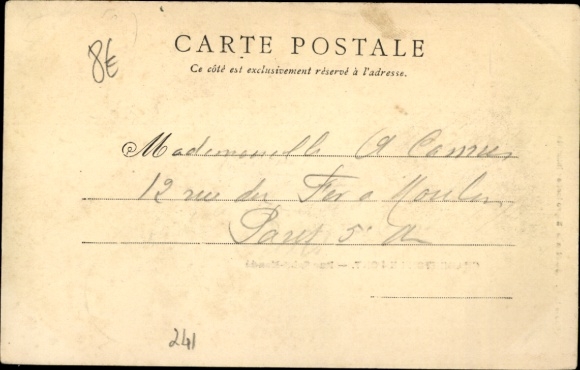 8€
CARTE POSTALE
Ce côté est exclusivement réservé à l'adresse.
Mademoiselle A Camus
12 rue du Fer a Moulin
Paris 5e Ar
241